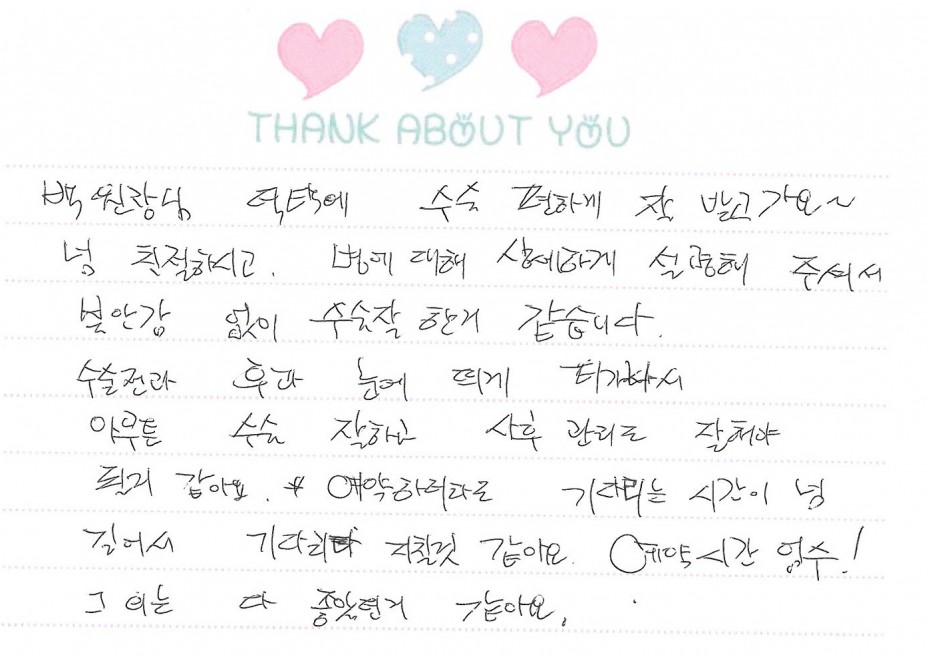 THANK ABOUT YOU
백 원장님 덕택에 수술 편하게 잘 받고 가요~
넘 친절하시고. 병에 대해 상세하게 설명해 주셔서
불안감 없이 수술잘 한거 같습니다.
수술전과 후과 눈에 띄게
아무튼 수술 잘하고 사후 관리도 잘해야
될거 같아요. * 예약하러다도 기다리는 시간이 넝
길어서 기다리다 지칠것 같아요. 예약시간 엄수!
그 외는 다 좋았던거 같아요.